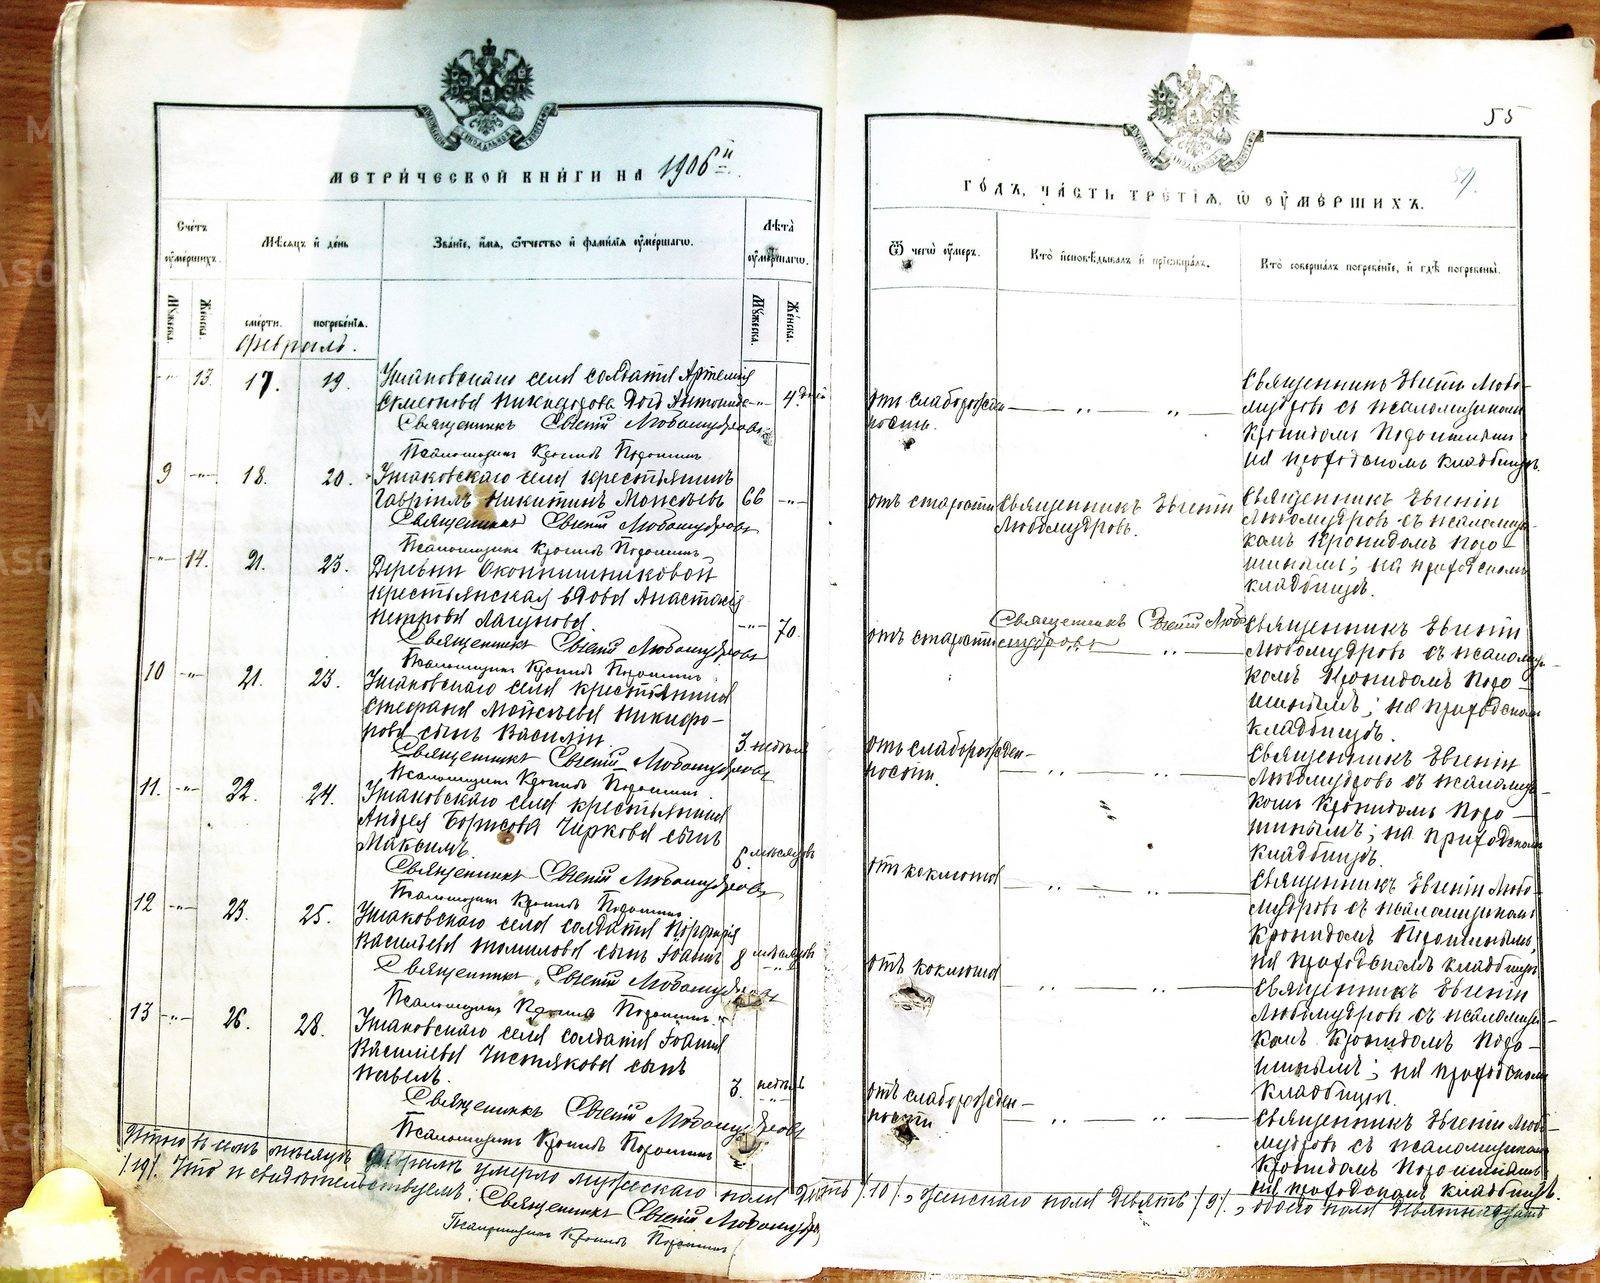 МЕТРИЧЕСКОЙ КНИГИ НА 1906й
Счетъ умершихъ.
Мѣсяцъ и день
Званіе, имя, отчество и фамилія умершаго.
Лѣта умершаго.
Мужеска.
Женска.
смерти.
погребенія.
Мужеска.
Женска.
Февраль.
13. 17. 19. Ушаковскаго села солдата Артемія
4 дней
Священникъ Евгеній Любомудровъ
Псаломщикъ Кронидъ
9 18. 20. Ушаковскаго села крестьянинъ
Гавріилъ Никитинъ Моисѣевъ 66
Священникъ Евгеній Любомудровъ
Псаломщикъ Кронидъ
14. 21. 23. Деревни
крестьянская вдова Анастасія
Петрова Лагунова. 70.
Священникъ Евгеній Любомудровъ
Псаломщикъ Кронидъ
10 21. 23. Ушаковскаго села крестьянина
Стефана Моисѣева Никифо-
рова сынъ Василій 3 недѣли
Священникъ Евгеній Любомудровъ
Псаломщикъ Кронидъ
11. 22. 24. Ушаковскаго села крестьянина
Андрея Борисова Чиркова сынъ
Максимъ. мѣсяцовъ
Священникъ Евгеній Любомудровъ
Псаломщикъ Кронидъ
12 23. 25. Ушаковскаго села солдата Порфирія
Васильева Томилова сынъ Іоаннъ 8 мѣсяцовъ
Священникъ Евгеній Любомудровъ
Псаломщикъ Кронидъ
13 26. 28. Ушаковскаго села солдата Іоанна
Василіева Чистякова сынъ
Павелъ. 3. недѣль
Священникъ Евгеній Любомудровъ
Псаломщикъ Кронидъ
Итого въ семъ мѣсяцѣ Февралѣ умерло мужескаго пола /10/, женскаго пола девять /9/, обоего пола девятнадцать
/19/. Что и свидѣтельствуемъ. Священникъ Евгеній Любомудровъ
Псаломщикъ Кронидъ
55
54.
ГОДЪ, ЧАСТЬ ТРЕТІЯ, Ѿ УМЕРШИХЪ.
Ѿ чегѡ умеръ.
Кто исповѣдывалъ и пріобщалъ.
Кто совершалъ погребеніе, и гдѣ погребены.
отъ слаборожден-
ности.
Священникъ Евгеній Любо-
мудровъ съ псаломщикомъ
Кронидомъ
на приходскомъ кладбищѣ.
отъ старости Священникъ Евгеній
Любомудровъ.
Священникъ Евгеній
Любомудровъ съ псаломщи-
комъ Кронидомъ
на приходскомъ
кладбищѣ.
отъ старости Священникъ Евгеній Любо-
мудровъ
Священникъ Евгеній
Любомудровъ съ псаломщи-
комъ Кронидомъ
на приходскомъ
кладбищѣ.
отъ слаборожден-
ности.
Священникъ Евгеній
Любомудровъ съ псаломщи-
комъ Кронидомъ
на приходскомъ
кладбищѣ.
отъ коклюша
Священникъ Евгеній Любо-
мудровъ съ псаломщикомъ
Кронидомъ
на приходскомъ кладбищѣ
отъ коклюша
Священникъ Евгеній
Любомудровъ съ псаломщи-
комъ Кронидомъ
на приходскомъ
кладбищѣ.
отъ слаборожден-
ности
Священникъ Евгеній Любо-
мудровъ съ псаломщикомъ
Кронидомъ
на приходскомъ кладбищѣ.